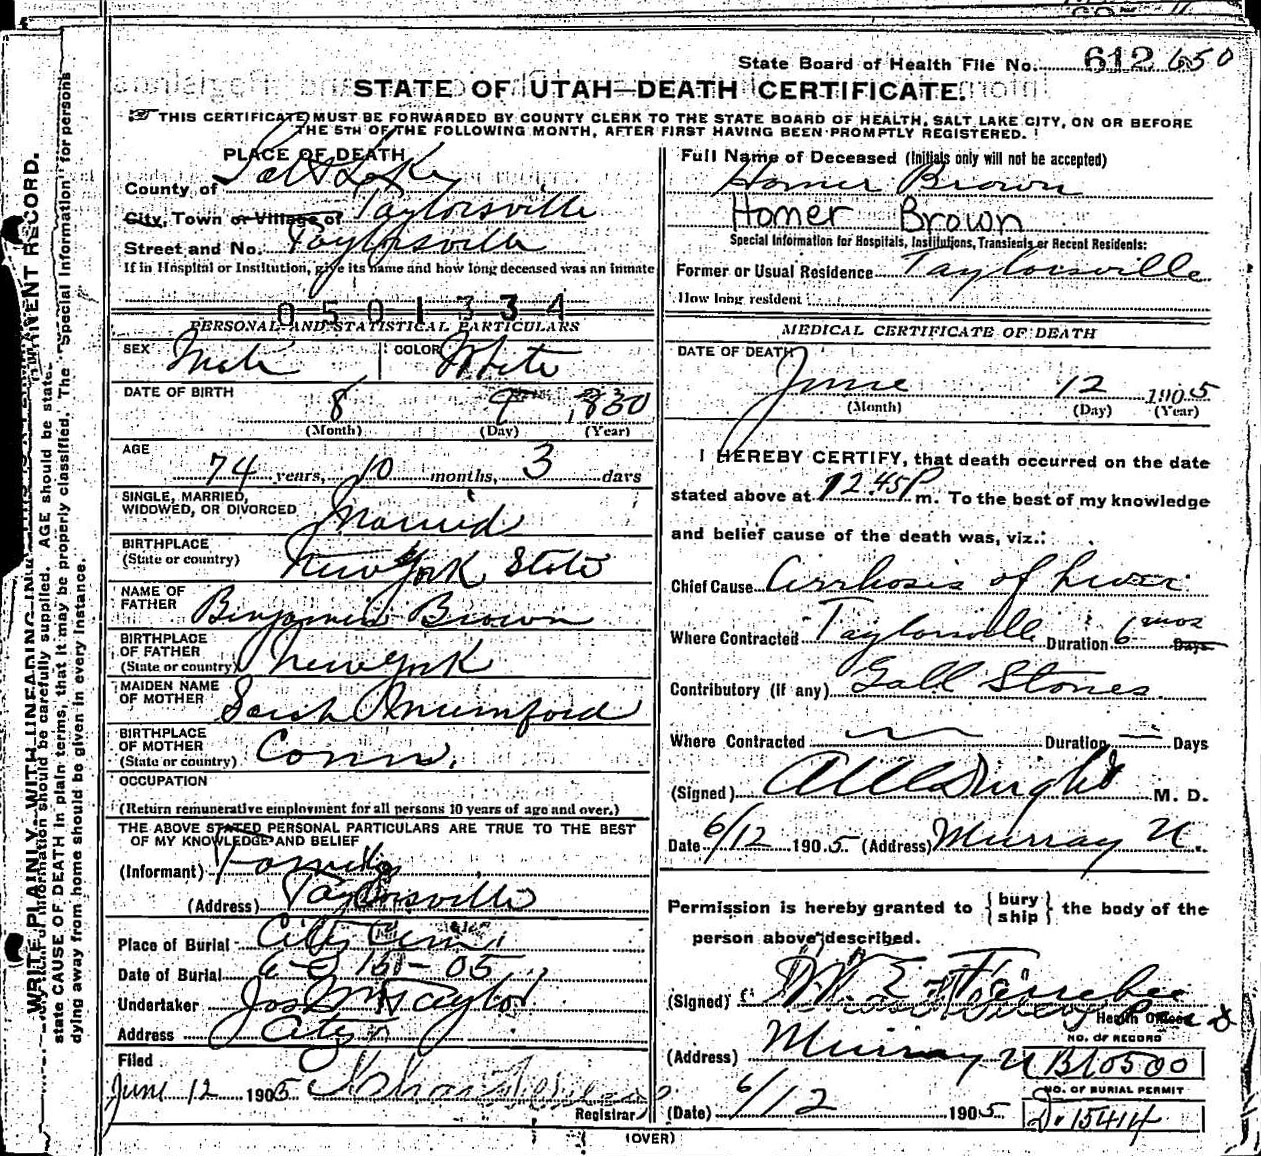 State Board of Health File No. 612 650
STATE OF UTAH—DEATH CERTIFICATE.
THIS CERTIFICATE MUST BE FORWARDED BY COUNTY CLERK TO THE STATE BOARD OF HEALTH, SALT LAKE CITY, ON OR BEFORE
THE 5TH OF THE FOLLOWING MONTH, AFTER FIRST HAVING BEEN PROMPTLY REGISTERED.
PLACE OF DEATH
County of Salt Lake
City, Town or Village of Taylorsville
Street and No. Taylorsville
If in Hospital or Institution, give its name and how long deceased was an inmate
0501334
PERSONAL AND STATISTICAL PARTICULARS
SEX Male COLOR White
DATE OF BIRTH 8 9 1830
(Month) (Day) (Year)
AGE
74 years, 10 months, 3 days
SINGLE, MARRIED,
WIDOWED, OR DIVORCED Married
BIRTHPLACE
(State or country) New York State
NAME OF
FATHER Benjamin Brown
BIRTHPLACE
OF FATHER
(State or country) New York
MAIDEN NAME
OF MOTHER Sarah Mumford
BIRTHPLACE
OF MOTHER
(State or country) Conn.
OCCUPATION
(Return remunerative employment for all persons 10 years of age and over.)
THE ABOVE STATED PERSONAL PARTICULARS ARE TRUE TO THE BEST
OF MY KNOWLEDGE AND BELIEF
(Informant) Family
(Address) Taylorsville
Place of Burial City Cem.
Date of Burial 6-15-05
Undertaker Jos Wm Taylor
Address City
Filed
June 12 1905
Registrar
Full Name of Deceased (Initials only will not be accepted)
Homer Brown
Homer Brown
Special Information for Hospitals, Institutions, Transients or Recent Residents:
Former or Usual Residence Taylorsville
How long resident
MEDICAL CERTIFICATE OF DEATH
DATE OF DEATH
June 12 1905
(Month) (Day) (Year)
I HEREBY CERTIFY, that death occurred on the date
stated above at 12.45 P m. To the best of my knowledge
and belief cause of the death was, viz.:
Chief Cause Cirrhosis of Liver
Where Contracted Taylorsville Duration 6 mos Days
Contributory (if any) Gall Stones
Where Contracted Duration Days
(Signed) Wright M. D.
Date 6/12 1905 (Address) Murray U.
Permission is hereby granted to {bury ship} the body of the
person above described.
(Signed) W. E. Ferrebee
Health Officer
(Address) Murray U
NO. OF RECORD
B10500
NO. OF BURIAL PERMIT
D. 15414
(Date) 6/12 1905
(OVER)
WRITE PLAINLY WITH UNFADING INK
PERMANENT RECORD.
information should be carefully supplied. AGE should be stated
state CAUSE OF DEATH in plain terms, that it may be properly classified. The "Special Information" for persons
dying away from home should be given in every instance.